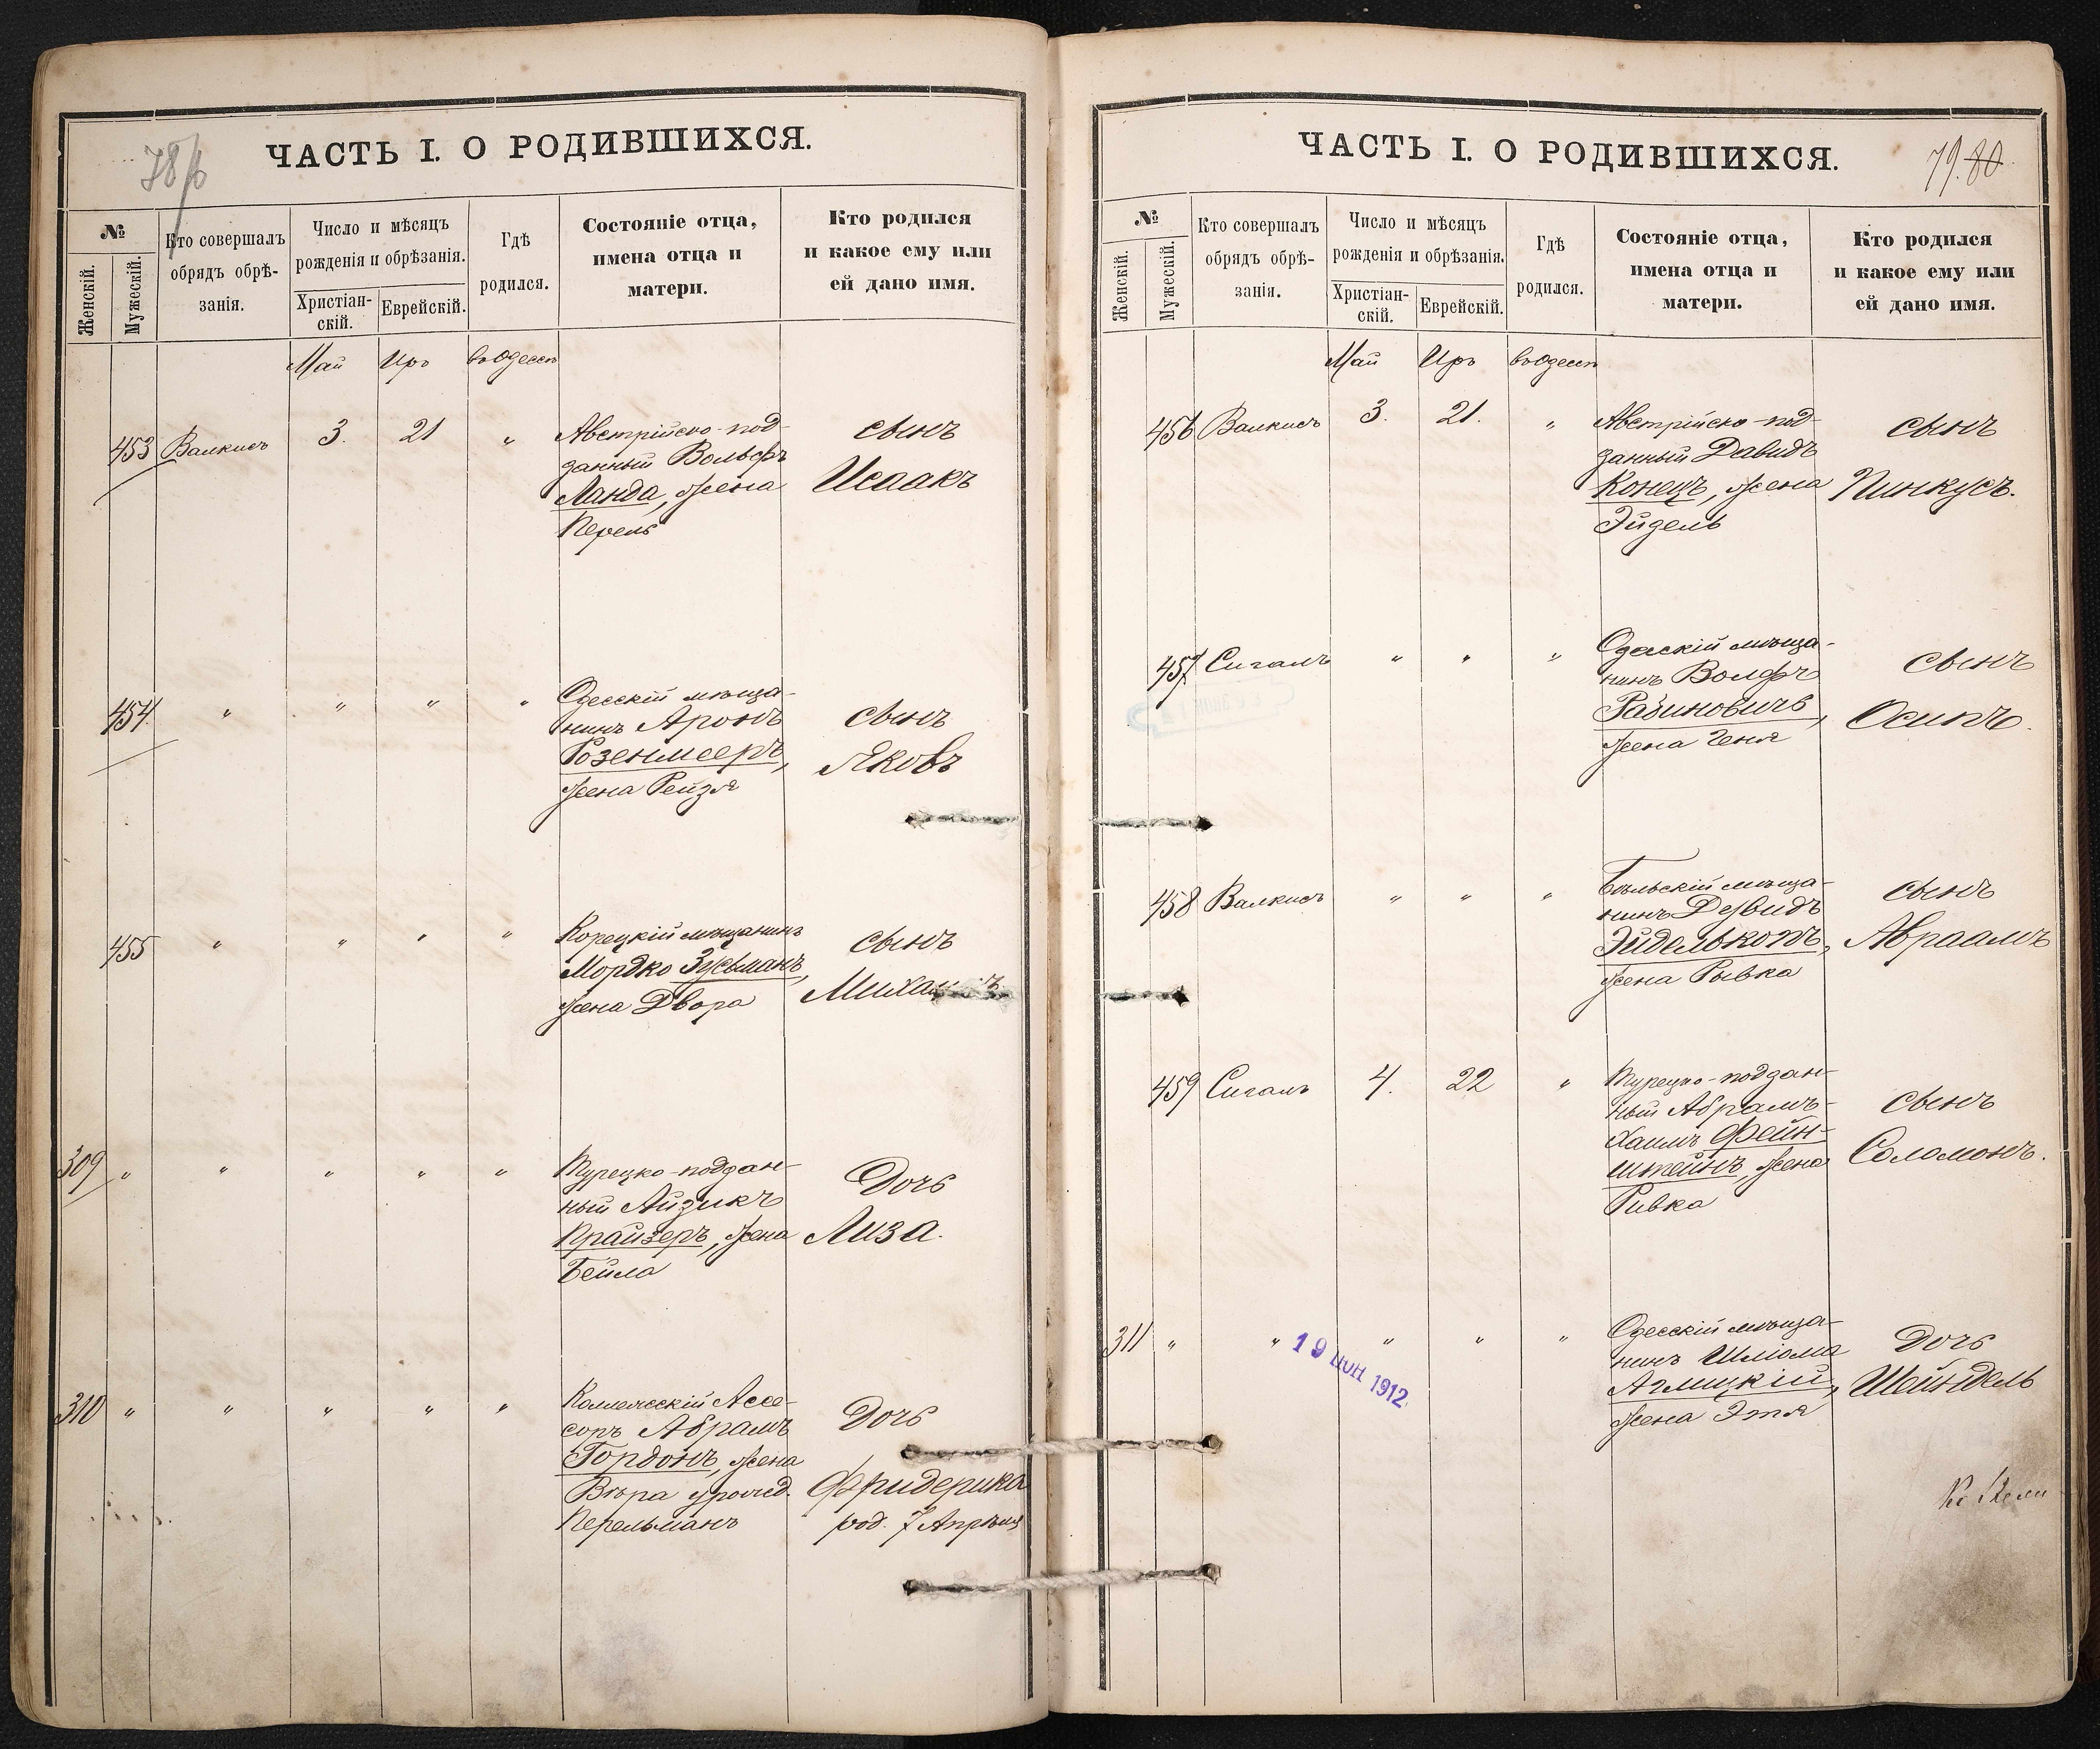 78
ЧАСТЬ I. О РОДИВШИХСЯ.
№
Женскій.
Мужескій.
Кто совершалъ
обрядъ обрѣ-
занія.
Число и мѣсяцъ
рожденія и обрѣзанія.
Христіан-
скій.
Еврейскій.
Гдѣ
родился.
Состояніе отца,
имена отца и
матери.
Кто родился
и какое ему или
ей дано имя.
Май Иръ въ Одессѣ
453 Валкисъ 3. 21 „ Австрійско-под-
данный Вольфъ
Ланда, жена
Перель
сынъ
Исаакъ
454 „ „ „ „ Одесскій мѣща-
нинъ Аронъ
Розенмееръ,
жена Рейзя
сынъ
Яковъ
455 „ „ „ „ Корецкій мѣщанинъ
Мордко Зусьманъ,
жена Двора
сынъ
309 „ „ „ „ „ Турецко-поддан-
ный Айзикъ
Прайзеръ, жена
Бейла
Дочь
Лиза.
310 „ „ „ „ „ Коллежскій Ассе-
соръ Абрамъ
Гордонъ, жена
Вѣра урожд.
Перельманъ
Дочь
Фридерика
род. 7 Апрѣля
ЧАСТЬ I. О РОДИВШИХСЯ.
79. 80
№
Женскій.
Мужескій.
Кто совершалъ
обрядъ обрѣ-
занія.
Число и мѣсяцъ
рожденія и обрѣзанія.
Христіан-
скій.
Еврейскій.
Гдѣ
родился.
Состояніе отца,
имена отца и
матери.
Кто родился
и какое ему или
ей дано имя.
Май Иръ въ Одессѣ
456 Валкисъ 3. 21. „ Австрійско-под-
данный Давидъ
Конецъ, жена
Эйдель
сынъ
Пинкусъ.
457 Сигалъ „ „ „ Одесскій мѣща-
нинъ Волфъ
Рабиновичъ,
жена Геня
сынъ
Осипъ.
458 Валкисъ „ „ „ Бѣльскій мѣща-
нинъ Дувидъ
Эйделькопъ,
жена Рывка
сынъ
Авраамъ
459 Сигалъ 4. 22 „ Турецко-поддан-
ный Абрамъ-
Хаимъ Фейн-
штейнъ, жена
Ривка
сынъ
Соломонъ.
311 „ „ „ „ „ Одесскій мѣща-
нинъ Шліома
Аглицкій,
жена Этя
Дочь
Шейндель
19 ИЮН 1912